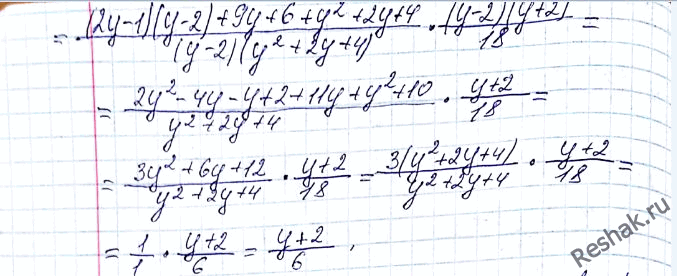 = ((2y-1)(y-2)+9y+6+y²+2y+4)/((y-2)(y²+2y+4)) · ((y-2)(y+2))/18 =
= (2y²-4y-y+2+11y+y²+10)/(y²+2y+4) · (y+2)/18 =
= (3y²+6y+12)/(y²+2y+4) · (y+2)/18 = (3(y²+2y+4))/(y²+2y+4) · (y+2)/18 =
= 1/1 · (y+2)/6 = (y+2)/6 .
Reshak.ru